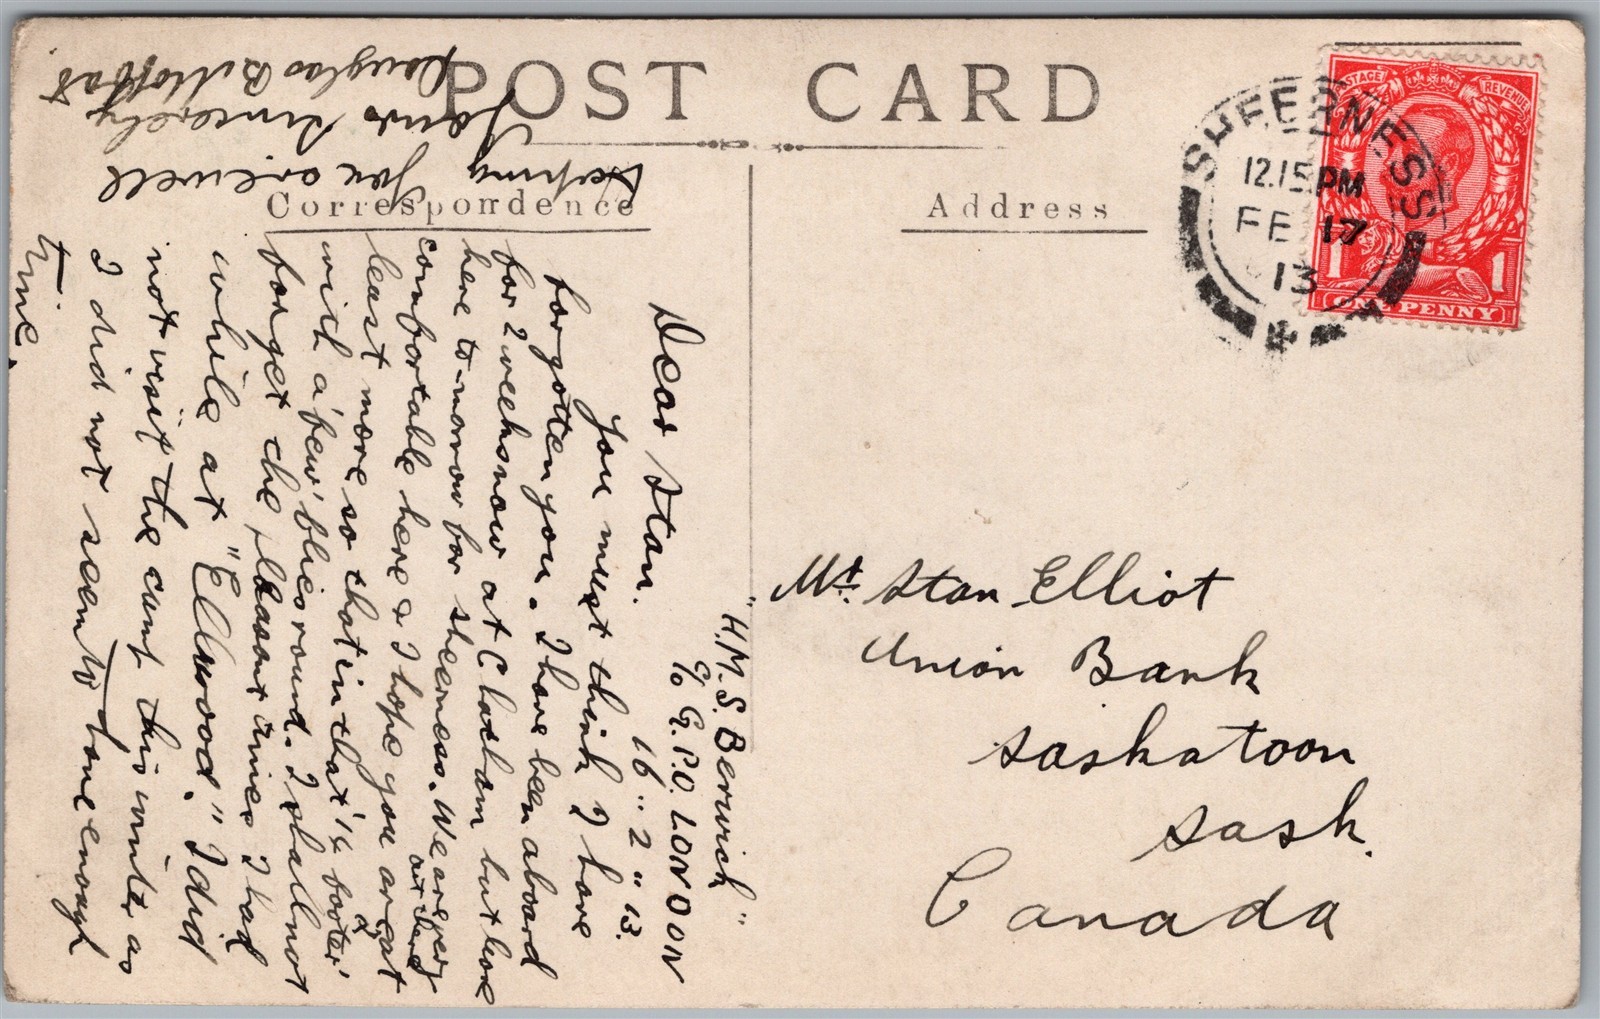 POST CARD
Correspondence
Address
SHEERNESS
12.15 PM
FE 17
13
POSTAGE
REVENUE
1
1
ONE PENNY
"H.M.S. Berwick"
c/o G.P.O. LONDON
16" 2" 13.
Dear Stan.
You must think I have
forgotten you. I have been aboard
for 2 weeks now at Chatham but leave
here to-morrow for sheerness. We are very
comfortable here & I hope you are at
least more so than in that
with a few' blies round. I shall not
forget the pleasant times I had
while at "Ellwood." I did
not visit the camp this winter as
I did not seem to have enough
time.
Hoping you are well
Yours Sincerely
Douglas B. Moffat.
Mr. Stan Elliot
Union Bank
Saskatoon
Sask.
Canada